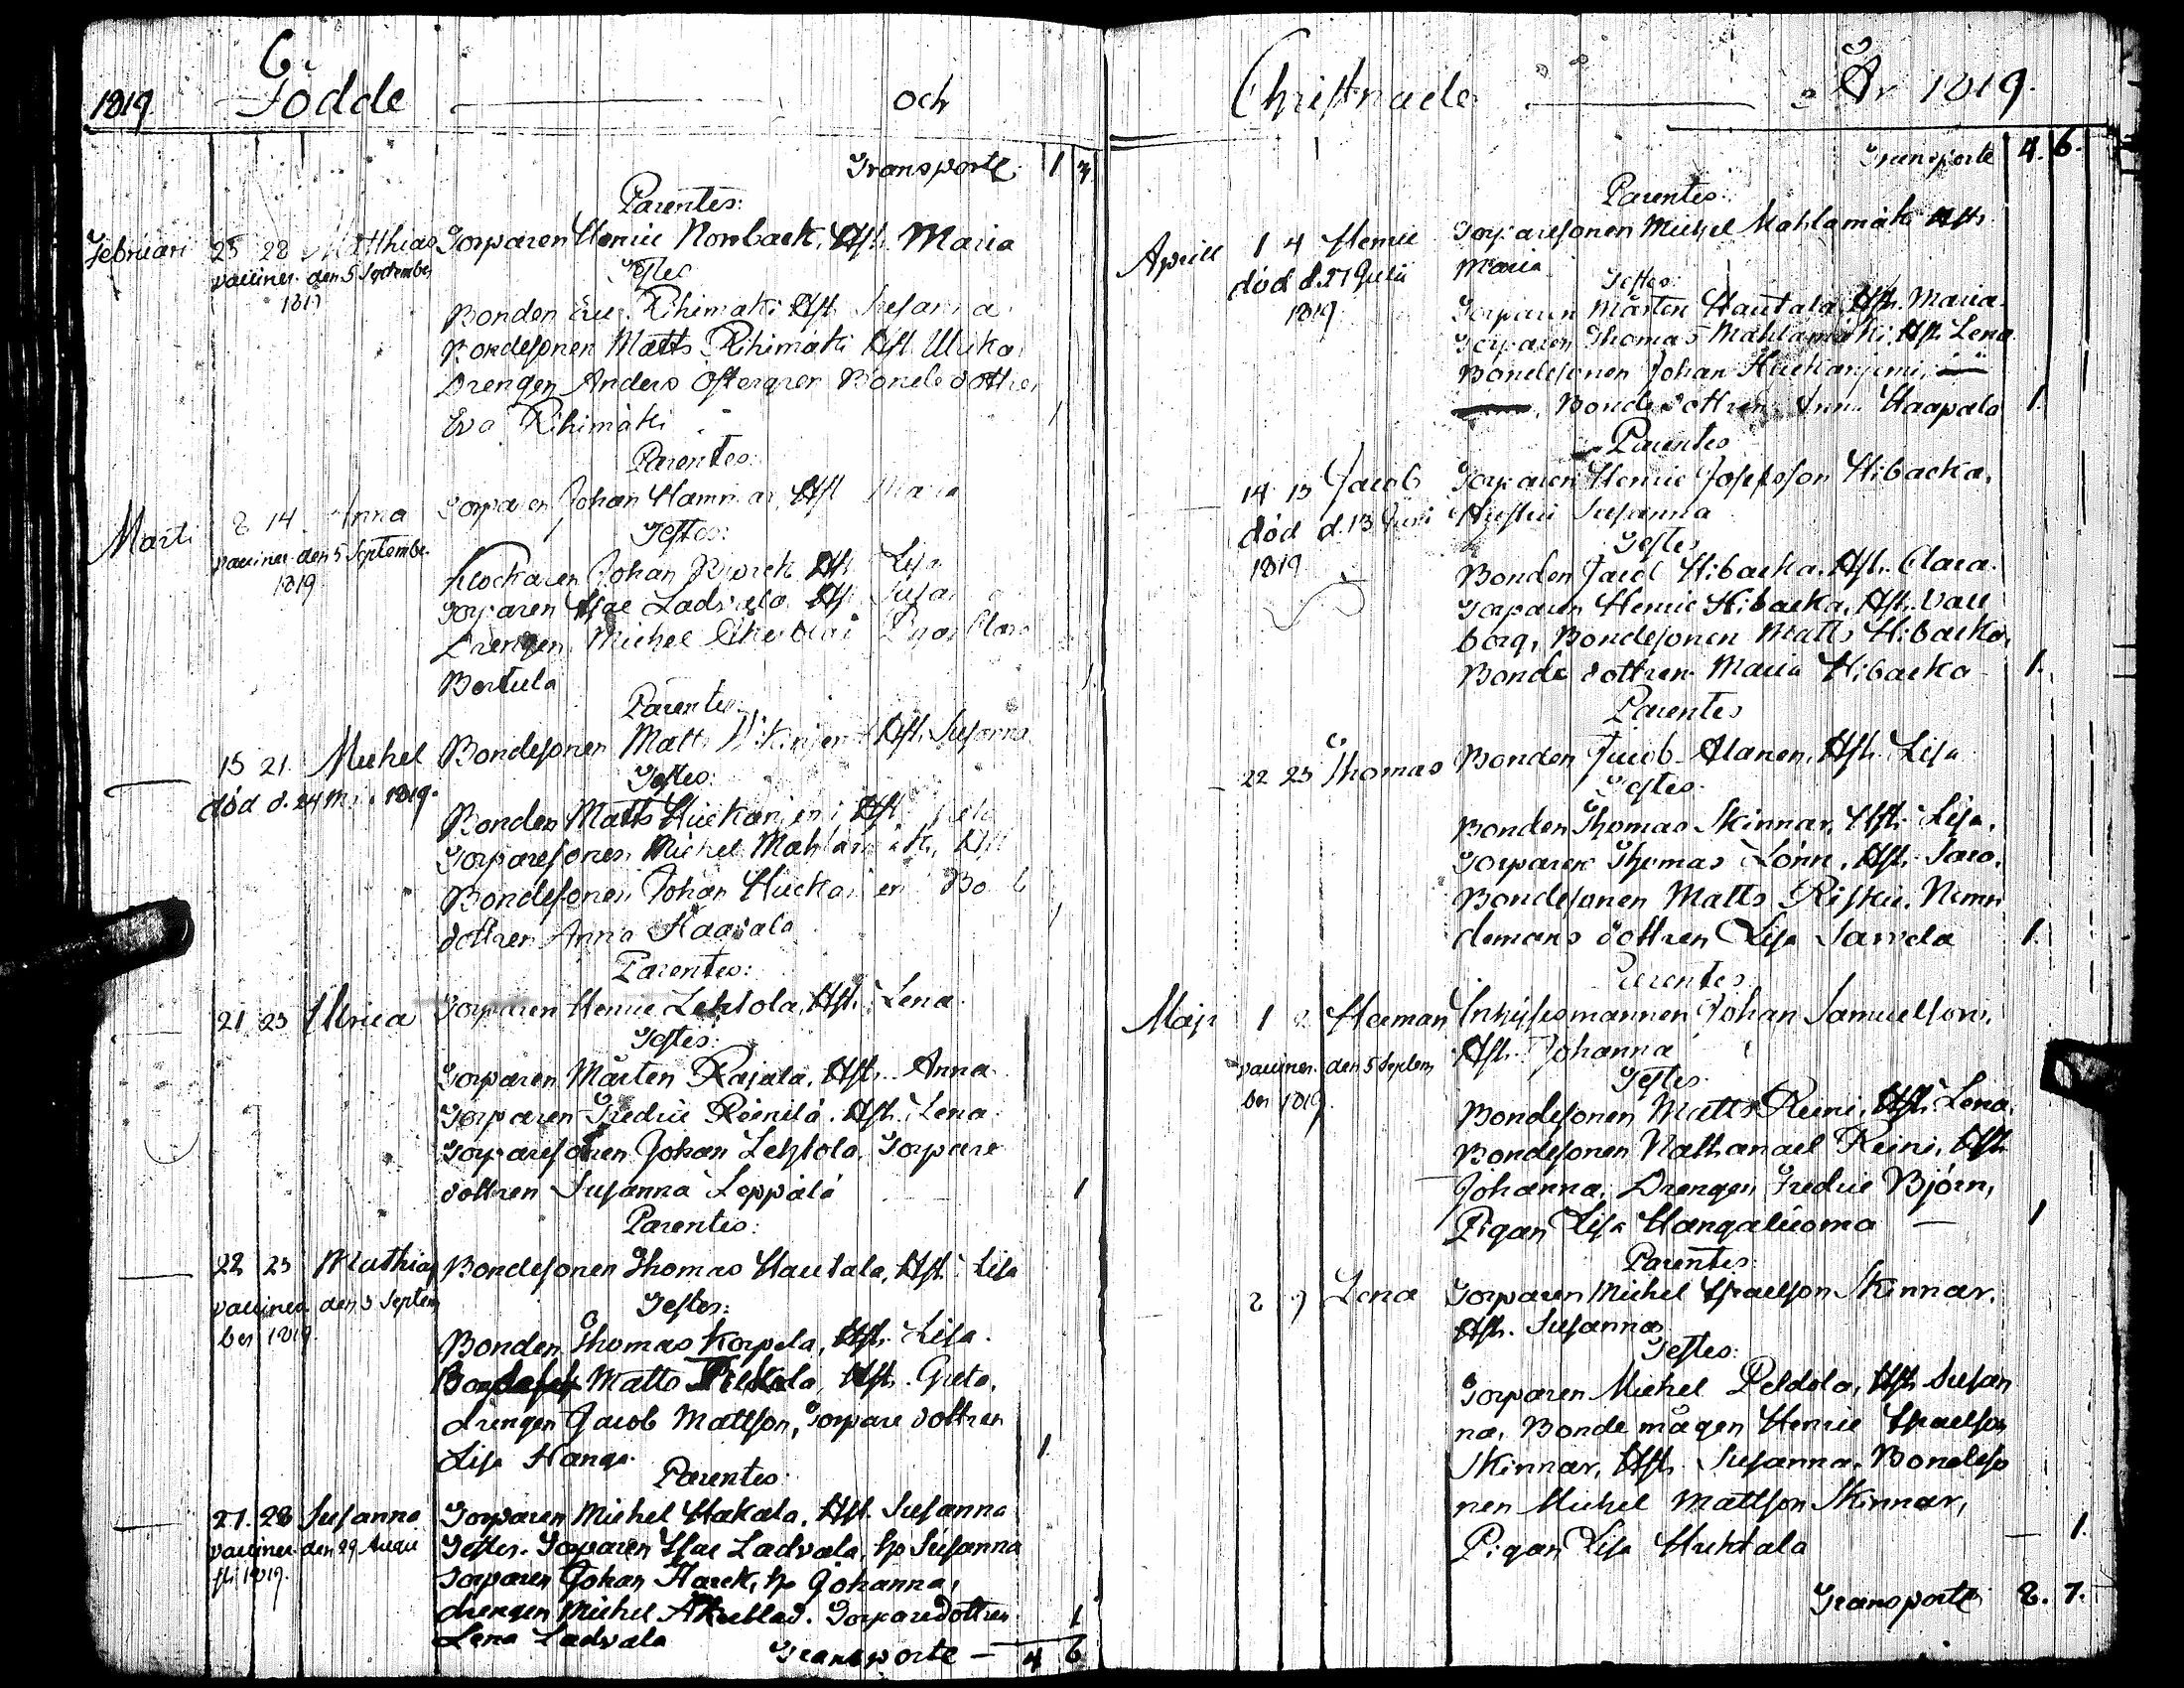 6.
1819. Födde och
Transporte 1 3
Parentes:
Februari 25 28 Matthias Torparen Henric Norrback, Hst. Maria
vacciner. den 5 September
1819
Testes
Bonden Eric Rihimäki Hst. Susanna
Bondesonen Matts Rihimäki Hst. Ulrika
Drengen Anders Östergren Bondedottren
Eva Rihimäki 1
Parentes:
Marti 8 14. Anna Torparen Johan Hammar, Hst Maria
vacciner den 5 Septembe.
1819
Testes:
Klockaren Johan Hst Lisa
Torparen Isac Ladvala Hst Susan
Drengen Michel Pigan Clara
Bertula 1.
Parentes
15 21. Michel Bondesonen Matts Hst. Susanna
död d. 24 1819.
Testes:
Bonden Matts Hst
Torparesonen Michel Mahlamäki, Hst
Bondesonen Johan Bonde
dottren Anna Haapala 1
Parentes:
21 25 Ulrica Torparen Henric Lehtola, Hst. Lena
Testes:
Torparen Mårten Rajala, Hst. Anna
Torparen Fredric Reinilä. Hst. Lena
Torparesonen Johan Lehtola, Torpare
dottren Susanna Leppälä 1
Parentes:
22 25 Mathias Bondesonen Thomas Hautala, Hst. Lisa
vacciner. den 5 Septem
ber 1819.
Testes:
Bonden Thomas Korpela, Hst. Lisa.
Matts Hst. Greta,
drengen Jacob Mattson, Torpare dottren
Lisa Hanga. 1.
Parentes:
27. 28 Susanna Torparen Michel Hakala, Hst. Susanna
vacciner. den 29 Augu
sti 1819.
Testes. Torparen Isac Ladvala, h. Susanna
Torparen Johan Harck, h. Johanna,
drengen Michel Åkerblad. Torparedottren 1
Lena Ladvala
Transporte — 4 6
Christnade År 1819.
Transporte 4. 6.
Parentes:
Aprill 1 4 Henric Torparesonen Michel Mahlamäki Hst.
död d. 27 Julii
1819
Maria
Testes:
Torparen Mårten Hautala, Hst. Maria.
Torparen Thomas Mahlamäki, Hst. Lena
Bondesonen Johan
Bondedottren Anna Haapala 1.
Parentes
14 15 Jacob Torparen Henric Josepsson Hibacka,
död d. 13 Juni
1819
Hustru Susanna
Testes
Bonden Jacob Hibacka, Hst. Clara.
Torparen Henric Hibacka, Hst. Wall
borg, Bondesonen Matts Hibacka,
Bonde dottren Maria Hibacka 1.
Parentes
22 25 Thomas Bonden Jacob Alanen, Hst. Lisa
Testes.
Bonden Thomas Skinnar, Hst. Lisa,
Torparen Thomas Lönn, Hst. Sara,
Bondesonen Matts Riskii, Nemn
demans dottren Lisa Sarvela 1.
Parentes
Maji 1 2 Herman Inhysesmannen Johan Samuelsson,
vacciner. den 5 Septem
ber 1819.
Hst. Johanna
Testes.
Bondesonen Matts Reini, Hst. Lena,
Bondesonen Nathanael Reini, Hst.
Johanna, Drengen Fredric Björn,
Pigan Lisa Hangaluoma — 1
Parentes
8 9 Lena Torparen Michel Israelsson Skinnar,
Hst. Susanna
Testes:
Torparen Michel Peldola, Hst. Susan
na, Bonde mågen Henric Israelsson
Skinnar, Hst. Susanna, Bondeso
nen Michel Mattson Skinnar,
Pigan Lisa Huhtala — 1.
Transporte 8. 7.